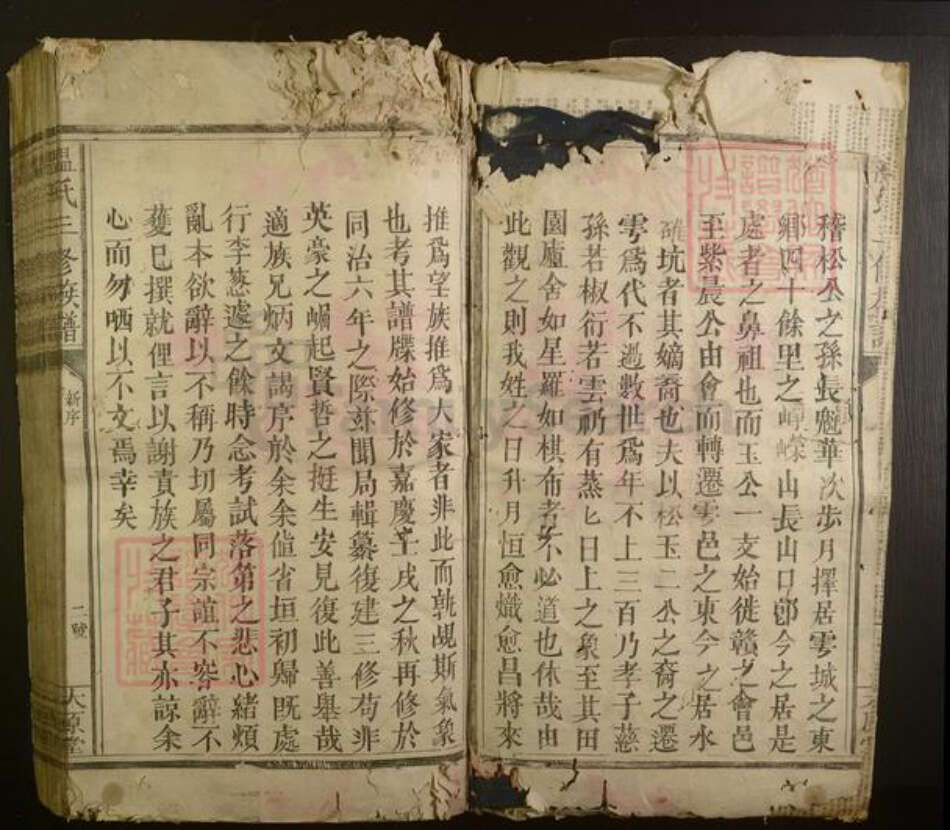 稽松公之孫長魁華次步月擇居雩城之東
鄉四十餘里之崢嶸山長山口即今之居是
處者之鼻祖也而玉公一支始徙贛之會邑
至紫晨公由會而轉遷雩邑之東今之居水
碓坑者其嫡裔也夫以松玉二公之裔之遷
雩爲代不過數世爲年不上三百乃孝子慈
孫若椒衍若雲礽有蒸匕日上之象至其田
園廬舍如星羅如棋布者不必道也休哉由
此觀之則我姓之日升月恒愈熾愈昌將來
推爲望族推爲大家者非此而孰覘斯氣象
也考其譜牒始修於嘉慶壬戌之秋再修於
同治六年之際茲聞局輯纂復建三修苟非
英豪之崛起賢哲之挺生安見復此善舉哉
適族兄炳文謁序於余余值省垣初歸既處
行李葱遽之餘時念考試落第之悲心緒煩
亂本欲辭以不稱乃切屬同宗誼不容辭不
獲已撰就俚言以謝貴族之君子其亦諒余
心而勿哂以不文焉幸矣
溫氏三修族譜
新序
二號
太原堂